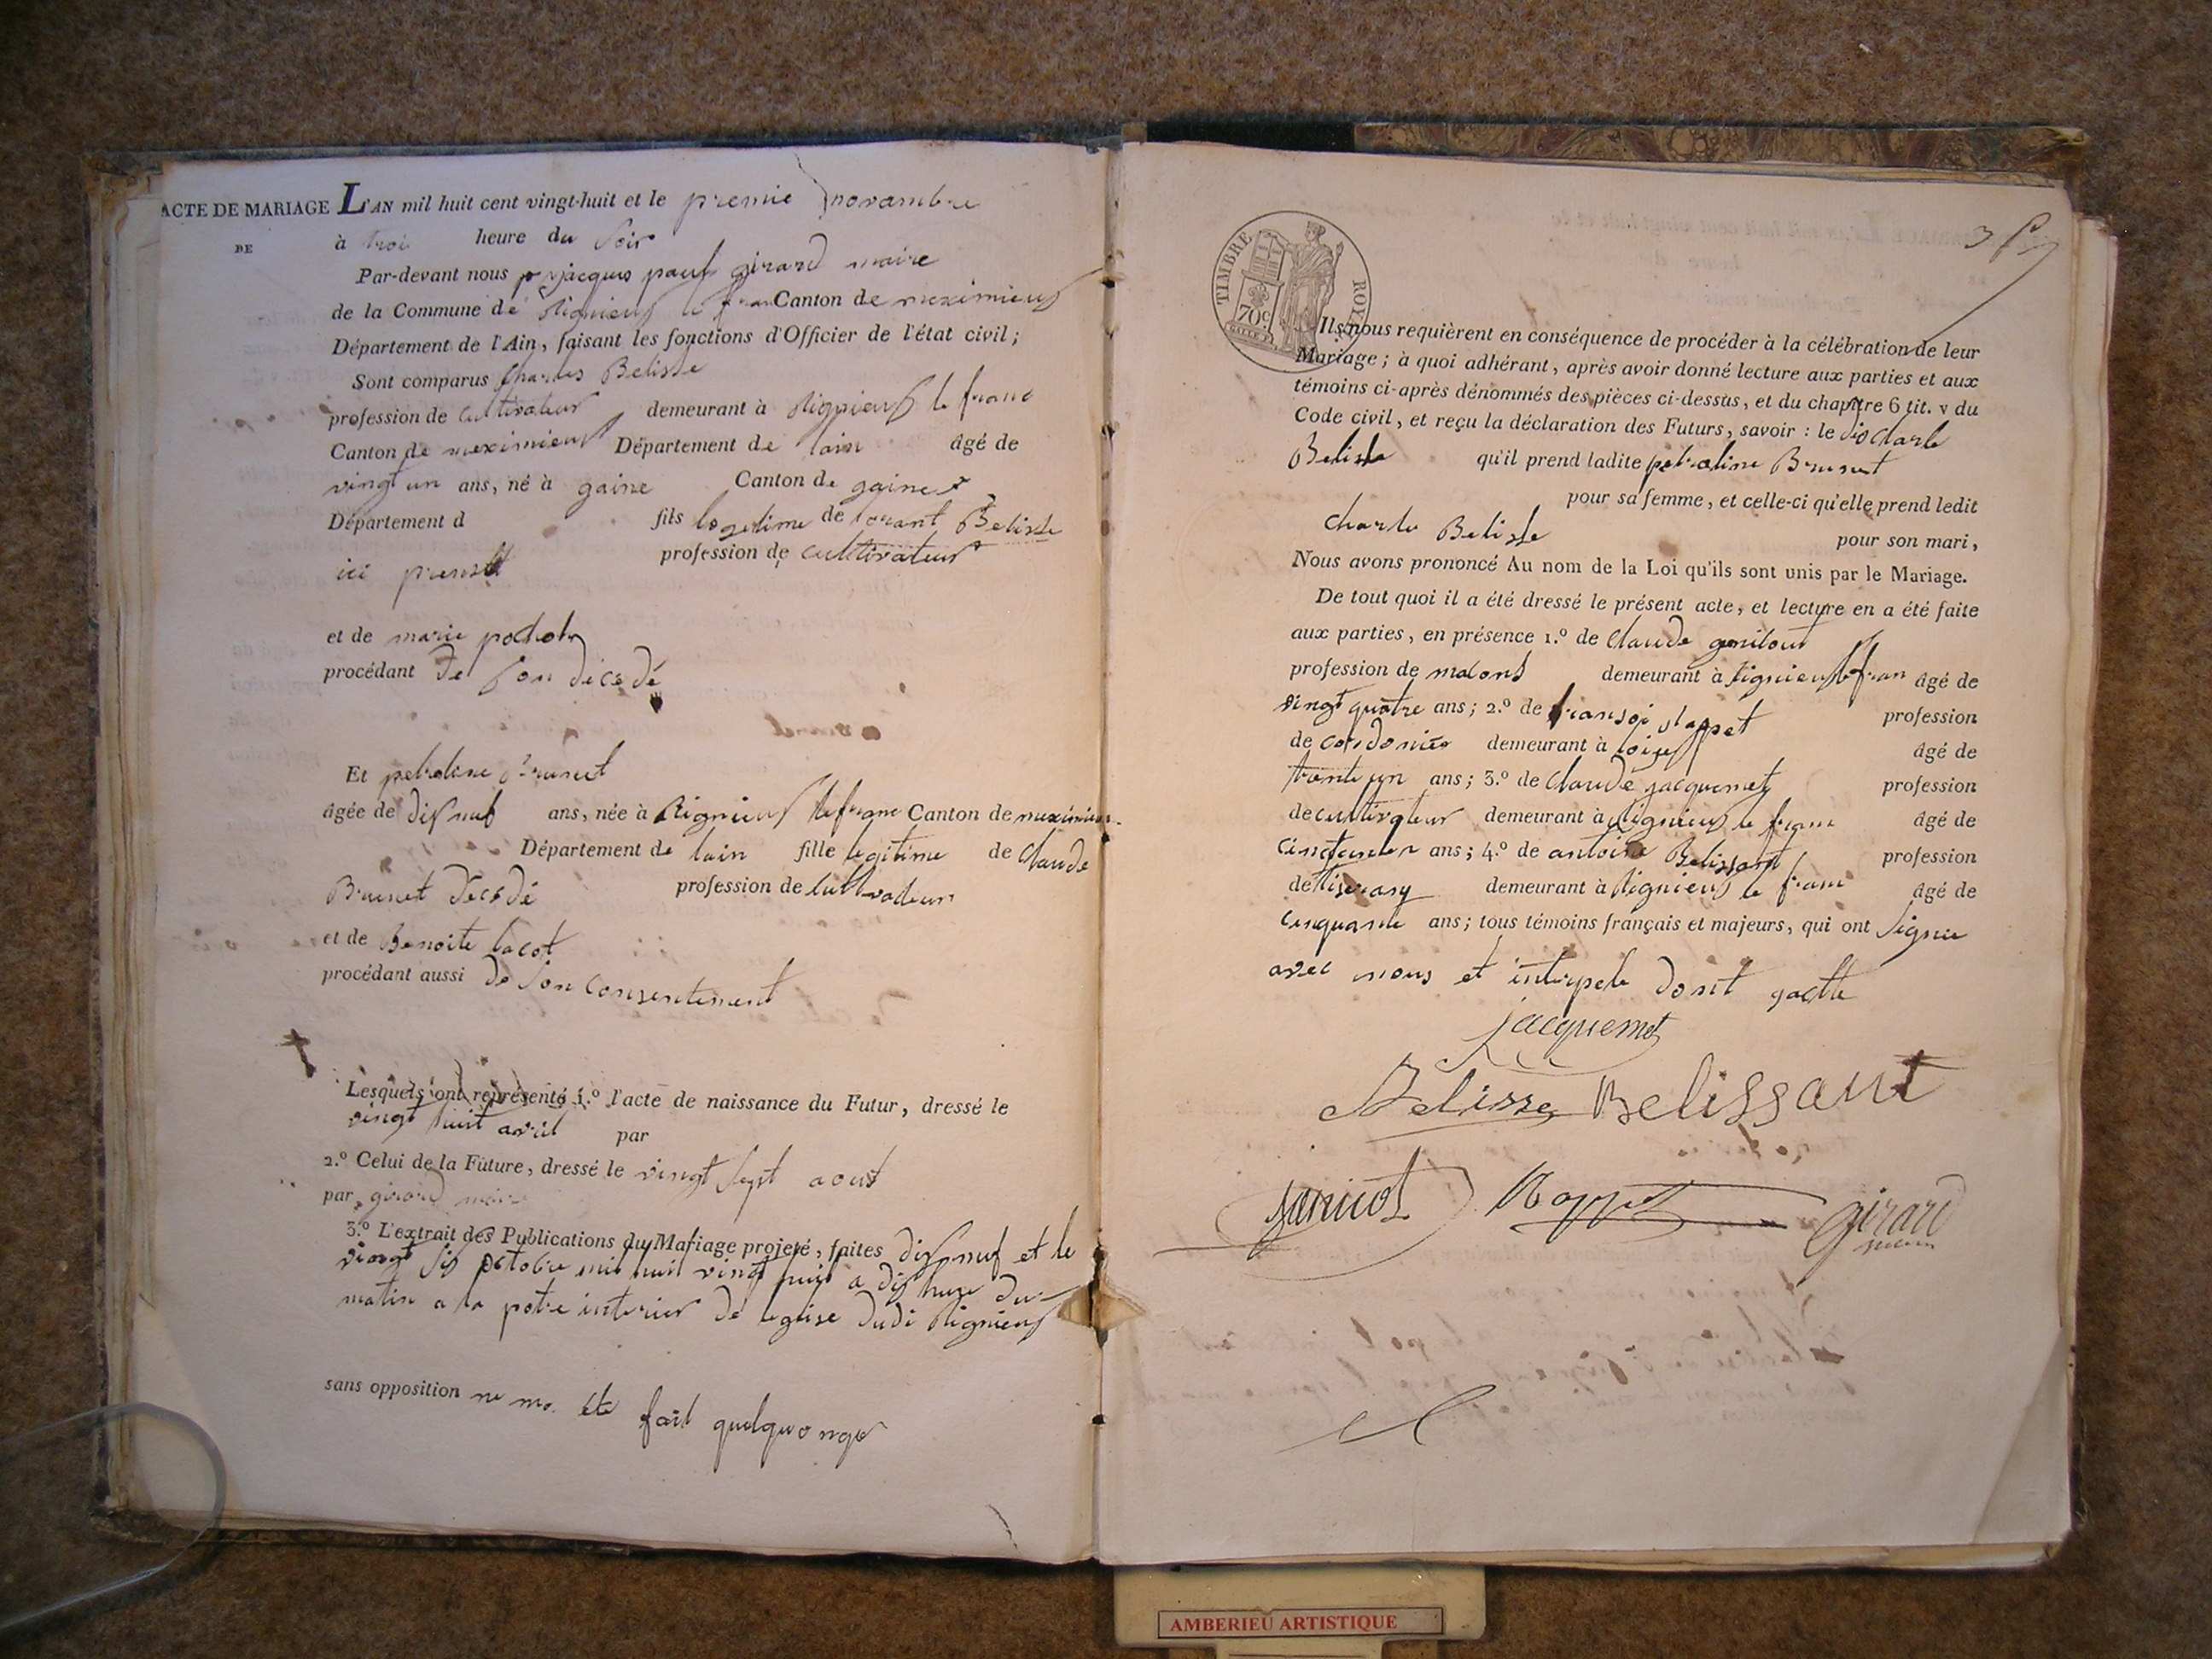 ACTE DE MARIAGE L'AN mil huit cent vingt-huit et le premie novambre
DE
à troi heure du soir
Par-devant nous jacques paul girard maire
de la Commune de Rignieux le fran Canton de meximieux
Département de l'Ain, faisant les fonctions d'Officier de l'état civil;
Sont comparus Charles Belisse
profession de cultivateur demeurant à Rignieux le franc
Canton de meximieux Département de lain âgé de
vingt un ans, né à gaine Canton de gaine
Département d fils de lorant Belisse
ici profession de cultivateur
et de marie
procédant de son décédé
Et petroline Brunet
âgée de dis neuf ans, née à Rignieux lefranc Canton de meximieux
Département de lain fille legitime de Claude
Brunet décédé profession de cultivateur
et de Benoite lacot
procédant aussi de son consentement
Lesquels ont représenté 1.º l'acte de naissance du Futur, dressé le
vingt huit avril par
2.º Celui de la Future, dressé le vingt sept aout
par girard maire
3.º L'extrait des Publications du Mariage projeté, faites dis neuf et le
vingt sis octobre mil huit vingt huit a dis heure du
matin a la potre interier de leglise dudi Rignieux
sans opposition ne ma été fait quelquonge
TIMBRE ROYAL
70c
Ils nous requièrent en conséquence de procéder à la célébration de leur
Mariage; à quoi adhérant, après avoir donné lecture aux parties et aux
témoins ci-après dénommés des pièces ci-dessus, et du chapitre 6 tit. v du
Code civil, et reçu la déclaration des Futurs, savoir : le dis Charle
Belisse qu'il prend ladite petroline Brunet
pour sa femme, et celle-ci qu'elle prend ledit
Charle Belisse pour son mari,
Nous avons prononcé Au nom de la Loi qu'ils sont unis par le Mariage.
De tout quoi il a été dressé le présent acte, et lecture en a été faite
aux parties, en présence 1.º de Claude
profession de demeurant à Rignieux le fran âgé de
vingt quatre ans; 2.º de fransoi profession
de cordonier demeurant à âgé de
trente un ans; 3.º de Claude jacquemet profession
de cultivateur demeurant à Rignieux le franc âgé de
ans; 4.º de antoine Belissant profession
de demeurant à Rignieux le franc âgé de
cinquante ans; tous témoins français et majeurs, qui ont signé
avec nous et interpele dont gactte
jacquemet
Belisse Belissant
janicot girard
maire
AMBERIEU ARTISTIQUE